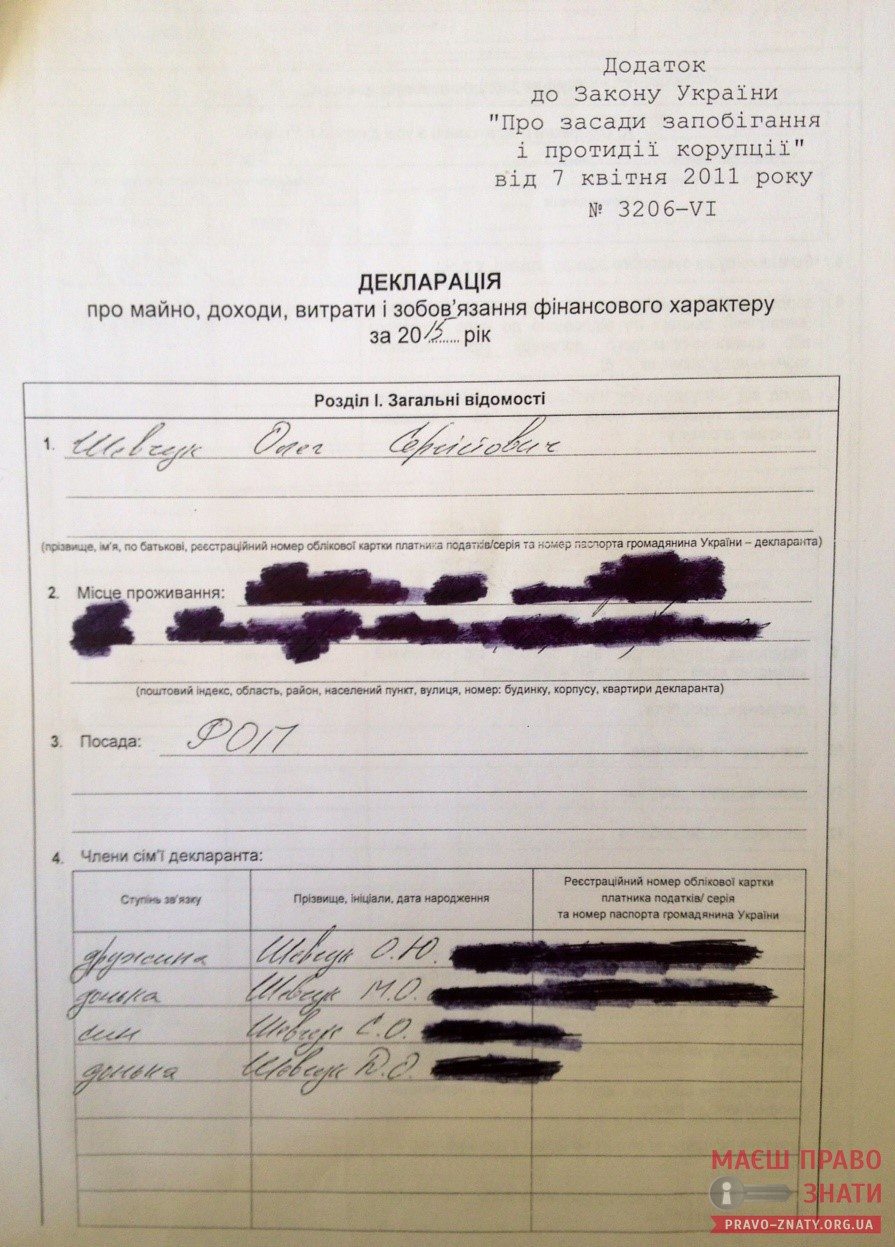 Додаток
до Закону України
"Про засади запобігання
і протидії корупції"
від 7 квітня 2011 року
№ 3206-VI
ДЕКЛАРАЦІЯ
про майно, доходи, витрати і зобов'язання фінансового характеру
за 2015 рік
Розділ I. Загальні відомості
1. Шевчук Олег Сергійович
(прізвище, ім'я, по батькові, реєстраційний номер облікової картки платника податків/серія та номер паспорта громадянина України – декларанта)
2. Місце проживання:
(поштовий індекс, область, район, населений пункт, вулиця, номер: будинку, корпусу, квартири декларанта)
3. Посада: ФОП
4. Члени сім'ї декларанта:
Ступінь зв'язку Прізвище, ініціали, дата народження Реєстраційний номер облікової картки
платника податків/ серія
та номер паспорта громадянина України
дружина Шевчук О.Ю.
донька Шевчук М.О.
син Шевчук С.О.
донька Шевчук Д.О.
МАЄШ ПРАВО
ЗНАТИ
PRAVO-ZNATY.ORG.UA